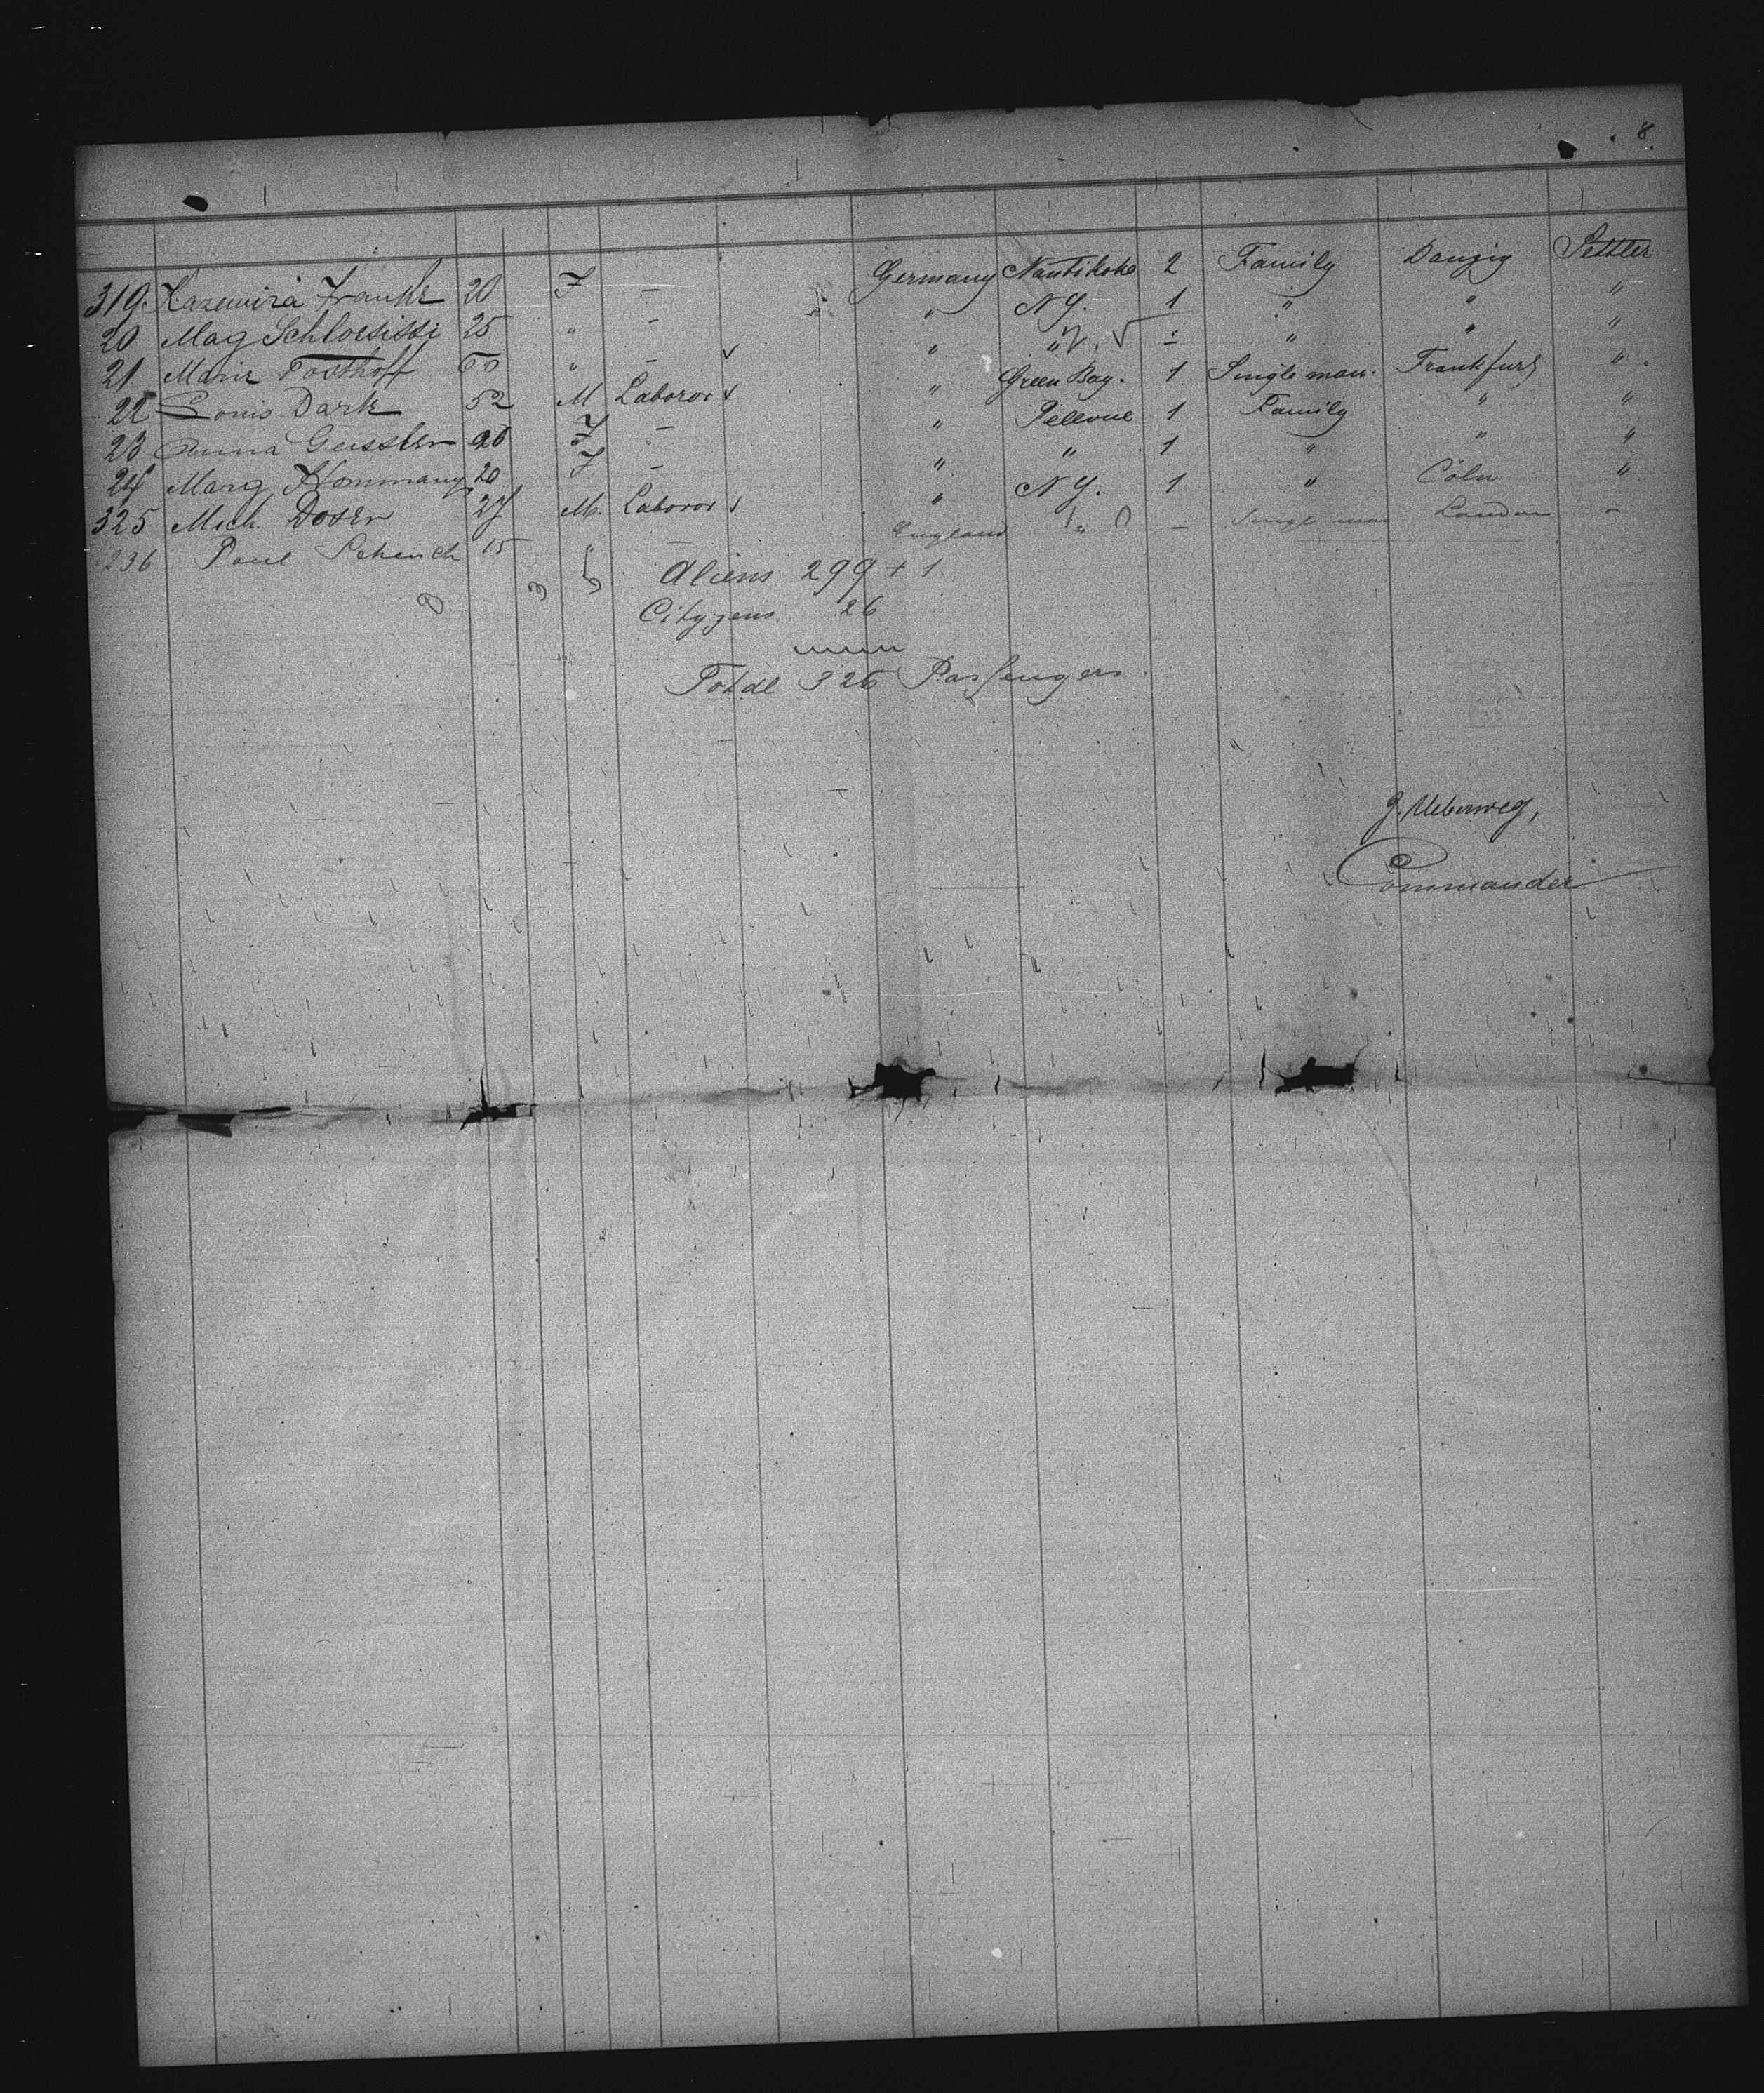 8.
319. Kazemira Franke 20 F — Germany Nantikoke 2 Family Danzig Settler
20 Mag Schloesissi 25 " — " N Y. 1 " " "
21 Marie Posthoff " — " " " " "
22 Louis Dark 52 M Laboror " Green Bay. 1 Single man. Frankfurt "
23 Anna Geissler 26 F — " Pellevue 1 Family " "
24 Marg Hommany 20 F — " " 1 " " "
325 Mich. Doser 27 M. Laboror " N Y. 1 " Cöln "
236 Paul Schenck 15 " — England " — Singl man London "
Aliens 299 + 1
Cityzens 26
Total 326 Passengers
J. Ueberweg,
Commander